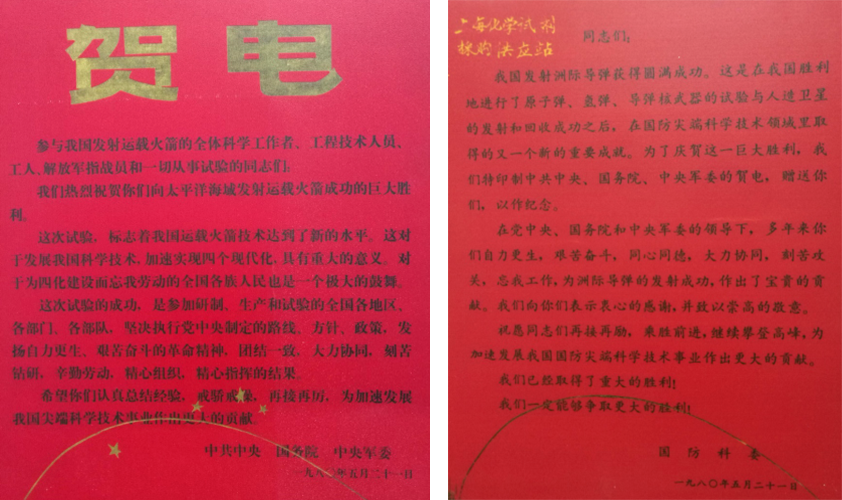 贺电
参与我国发射运载火箭的全体科学工作者、工程技术人员、
工人、解放军指战员和一切从事试验的同志们：
我们热烈祝贺你们向太平洋海域发射运载火箭成功的巨大胜
利。
这次试验，标志着我国运载火箭技术达到了新的水平。这对
于发展我国科学技术，加速实现四个现代化，具有重大的意义。对
于为四化建设而忘我劳动的全国各族人民也是一个极大的鼓舞。
这次试验的成功，是参加研制、生产和试验的全国各地区、
各部门、各部队，坚决执行党中央制定的路线、方针、政策，发
扬自力更生、艰苦奋斗的革命精神，团结一致、大力协同，刻苦
钻研，辛勤劳动，精心组织，精心指挥的结果。
希望你们认真总结经验，戒骄戒躁，再接再厉，为加速发展
我国尖端科学技术事业作出更大的贡献。
中共中央 国务院 中央军委
一九八〇年五月二十一日
上海化学试剂
采购供应站
同志们：
我国发射洲际导弹获得圆满成功。这是在我国胜利
地进行了原子弹、氢弹、导弹核武器的试验与人造卫星
的发射和回收成功之后，在国防尖端科学技术领域里取
得的又一个新的重要成就。为了庆贺这一巨大胜利，我
们特印制中共中央、国务院、中央军委的贺电，赠送你
们，以作纪念。
在党中央、国务院和中央军委的领导下，多年来你
们自力更生，艰苦奋斗，同心同德，大力协同，刻苦攻
关，忘我工作，为洲际导弹的发射成功，作出了宝贵的贡
献。我们向你们表示衷心的感谢，并致以崇高的敬意。
祝愿同志们再接再励，乘胜前进，继续攀登高峰，为
加速发展我国国防尖端科学技术事业作出更大的贡献。
我们已经取得了重大的胜利！
我们一定能够争取更大的胜利！
国防科委
一九八〇年五月二十一日